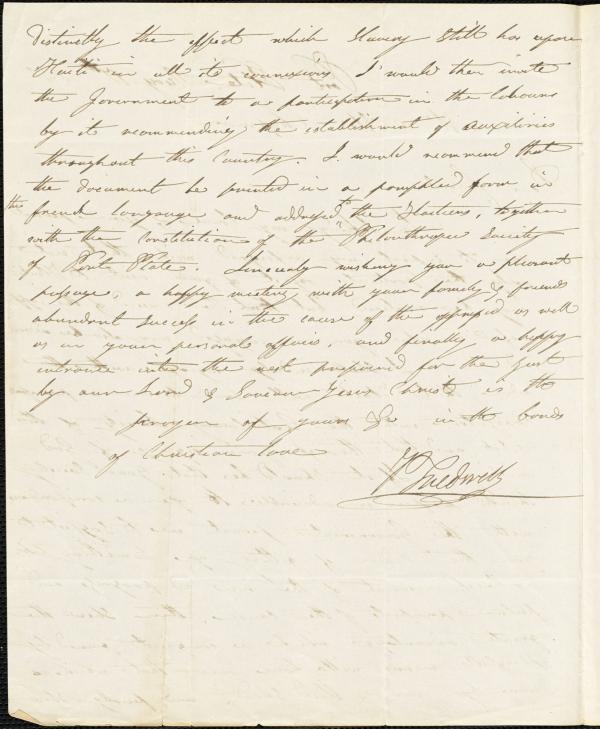 distinctly the effect which Slavery still has upon
Haiti in all its connexions I would then invite
the Government to a participation in the labours
by it recommending the establishment of auxiliaries
throughout this Country. I would recommend that
the document be printed in a pamphlet form in
the
french language and addressed to the Haitiens, together
with the Constitution of the "Philanthropic Society
of Port Plate. Sincerely wishing you a pleasant
passage, a happy meeting with your family & friends
abundant success in the cause of the oppressed as well
as in your personal affairs, and finally a happy
entrance into the rest prepared for the just
by our Lord & Saviour Jesus Christ is the
prayer of yours &c in the bonds
of Christian love
Tredwell